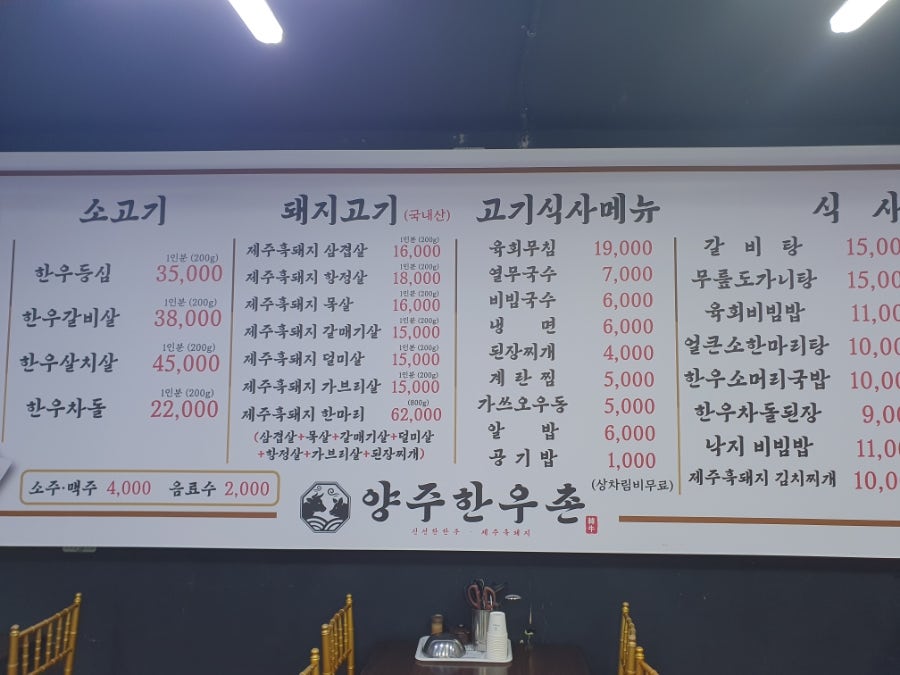 소고기
1인분 (200g)
한우등심 35,000
1인분 (200g)
한우갈비살 38,000
1인분 (200g)
한우살치살 45,000
1인분 (200g)
한우차돌 22,000
소주·맥주 4,000 음료수 2,000
돼지고기 (국내산)
1인분 (200g)
제주흑돼지 삼겹살 16,000
1인분 (200g)
제주흑돼지 항정살 18,000
1인분 (200g)
제주흑돼지 목살 16,000
1인분 (200g)
제주흑돼지 갈매기살 15,000
1인분 (200g)
제주흑돼지 덜미살 15,000
1인분 (200g)
제주흑돼지 가브리살 15,000
(800g)
제주흑돼지 한마리 62,000
(삼겹살+목살+갈매기살+덜미살
+항정살+가브리살+된장찌개)
고기식사메뉴
육회무침 19,000
열무국수 7,000
비빔국수 6,000
냉 면 6,000
된장찌개 4,000
계 란 찜 5,000
가쓰오우동 5,000
알 밥 6,000
공 기 밥 1,000
(상차림비무료)
식 사
갈 비 탕 15,00
무릎도가니탕 15,00
육회비빔밥 11,00
얼큰소한마리탕 10,00
한우소머리국밥 10,00
한우차돌된장 9,00
낙지 비빔밥 11,00
제주흑돼지 김치찌개 10,00
양주한우촌
신선한한우 · 제주흑돼지
韓牛